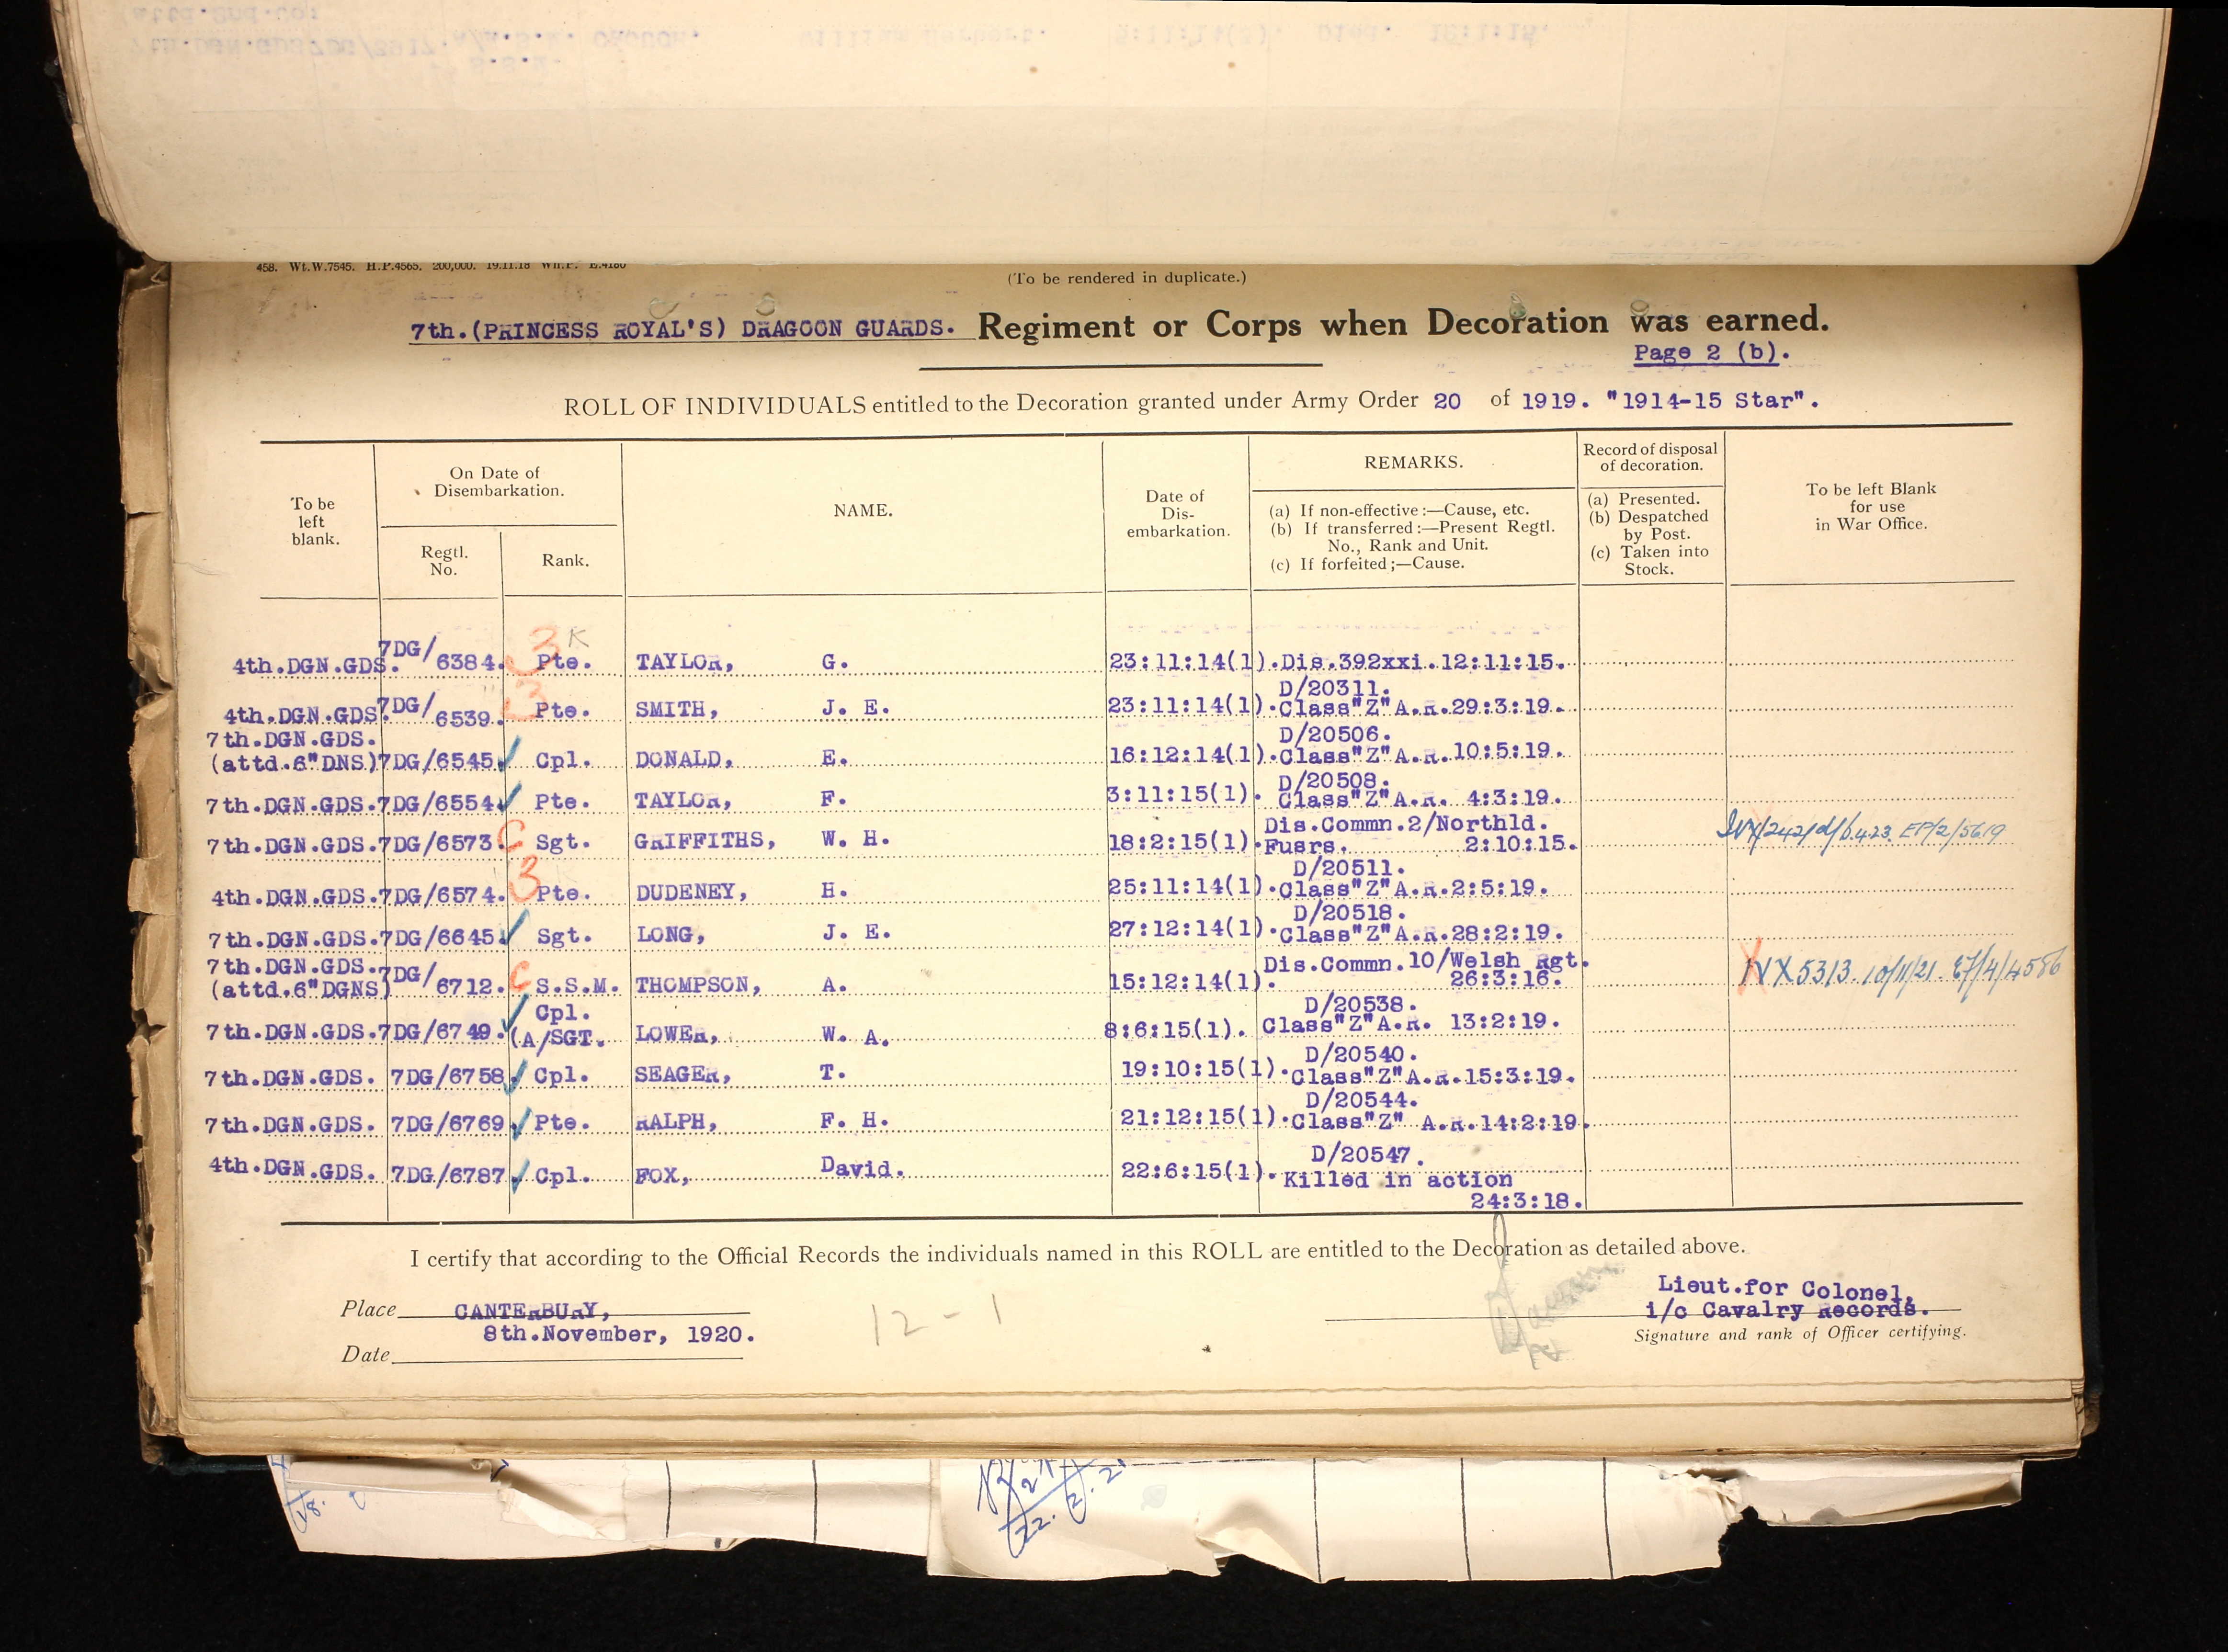 458. Wt.W.7545. H.P.4565. 200,000. 19.11.18
(To be rendered in duplicate.)
7th.(PRINCESS ROYAL'S) DRAGOON GUARDS. Regiment or Corps when Decoration was earned.
Page 2 (b).
ROLL OF INDIVIDUALS entitled to the Decoration granted under Army Order 20 of 1919. "1914-15 Star".
To be left blank.
On Date of Disembarkation.
Regtl. No.
Rank.
NAME.
Date of Dis-embarkation.
REMARKS.
(a) If non-effective :—Cause, etc.
(b) If transferred :—Present Regtl. No., Rank and Unit.
(c) If forfeited ;—Cause.
Record of disposal of decoration.
(a) Presented.
(b) Despatched by Post.
(c) Taken into Stock.
To be left Blank for use in War Office.
3 K
4th.DGN.GDS. 7DG/6384. Pte. TAYLOR, G. 23:11:14(1). Dis.392xxi. 12:11:15.
3
D/20311.
4th.DGN.GDS. 7DG/6539. Pte. SMITH, J. E. 23:11:14(1). Class"Z"A.R. 29:3:19.
7th.DGN.GDS. D/20506.
(attd.6"DNS) 7DG/6545. Cpl. DONALD, E. 16:12:14(1). Class"Z"A.R. 10:5:19.
D/20508.
7th.DGN.GDS. 7DG/6554 Pte. TAYLOR, F. 3:11:15(1). Class"Z"A.R. 4:3:19.
Dis.Commn.2/Northld.
7th.DGN.GDS. 7DG/6573. C Sgt. GRIFFITHS, W. H. 18:2:15(1). Fusrs. 2:10:15.
3
D/20511.
4th.DGN.GDS. 7DG/6574. Pte. DUDENEY, H. 25:11:14(1). Class"Z"A.R. 2:5:19.
D/20518.
7th.DGN.GDS. 7DG/6645. Sgt. LONG, J. E. 27:12:14(1). Class"Z"A.R. 28:2:19.
7th.DGN.GDS. Dis.Commn.10/Welsh Rgt.
(attd.6"DGNS) 7DG/6712. C S.S.M. THOMPSON, A. 15:12:14(1). 26:3:16. X
Cpl. D/20538.
7th.DGN.GDS. 7DG/6749. (A/SGT. LOWER, W. A. 8:6:15(1). Class"Z"A.R. 13:2:19.
D/20540.
7th.DGN.GDS. 7DG/6758. Cpl. SEAGER, T. 19:10:15(1). Class"Z"A.R. 15:3:19.
D/20544.
7th.DGN.GDS. 7DG/6769 Pte. RALPH, F. H. 21:12:15(1). Class"Z" A.R. 14:2:19.
D/20547.
4th.DGN.GDS. 7DG/6787 Cpl. FOX, David. 22:6:15(1). Killed in action
24:3:18.
I certify that according to the Official Records the individuals named in this ROLL are entitled to the Decoration as detailed above.
Place CANTERBURY,
8th.November, 1920.
Date
12 - 1
Lieut.for Colonel,
i/c Cavalry Records.
Signature and rank of Officer certifying.